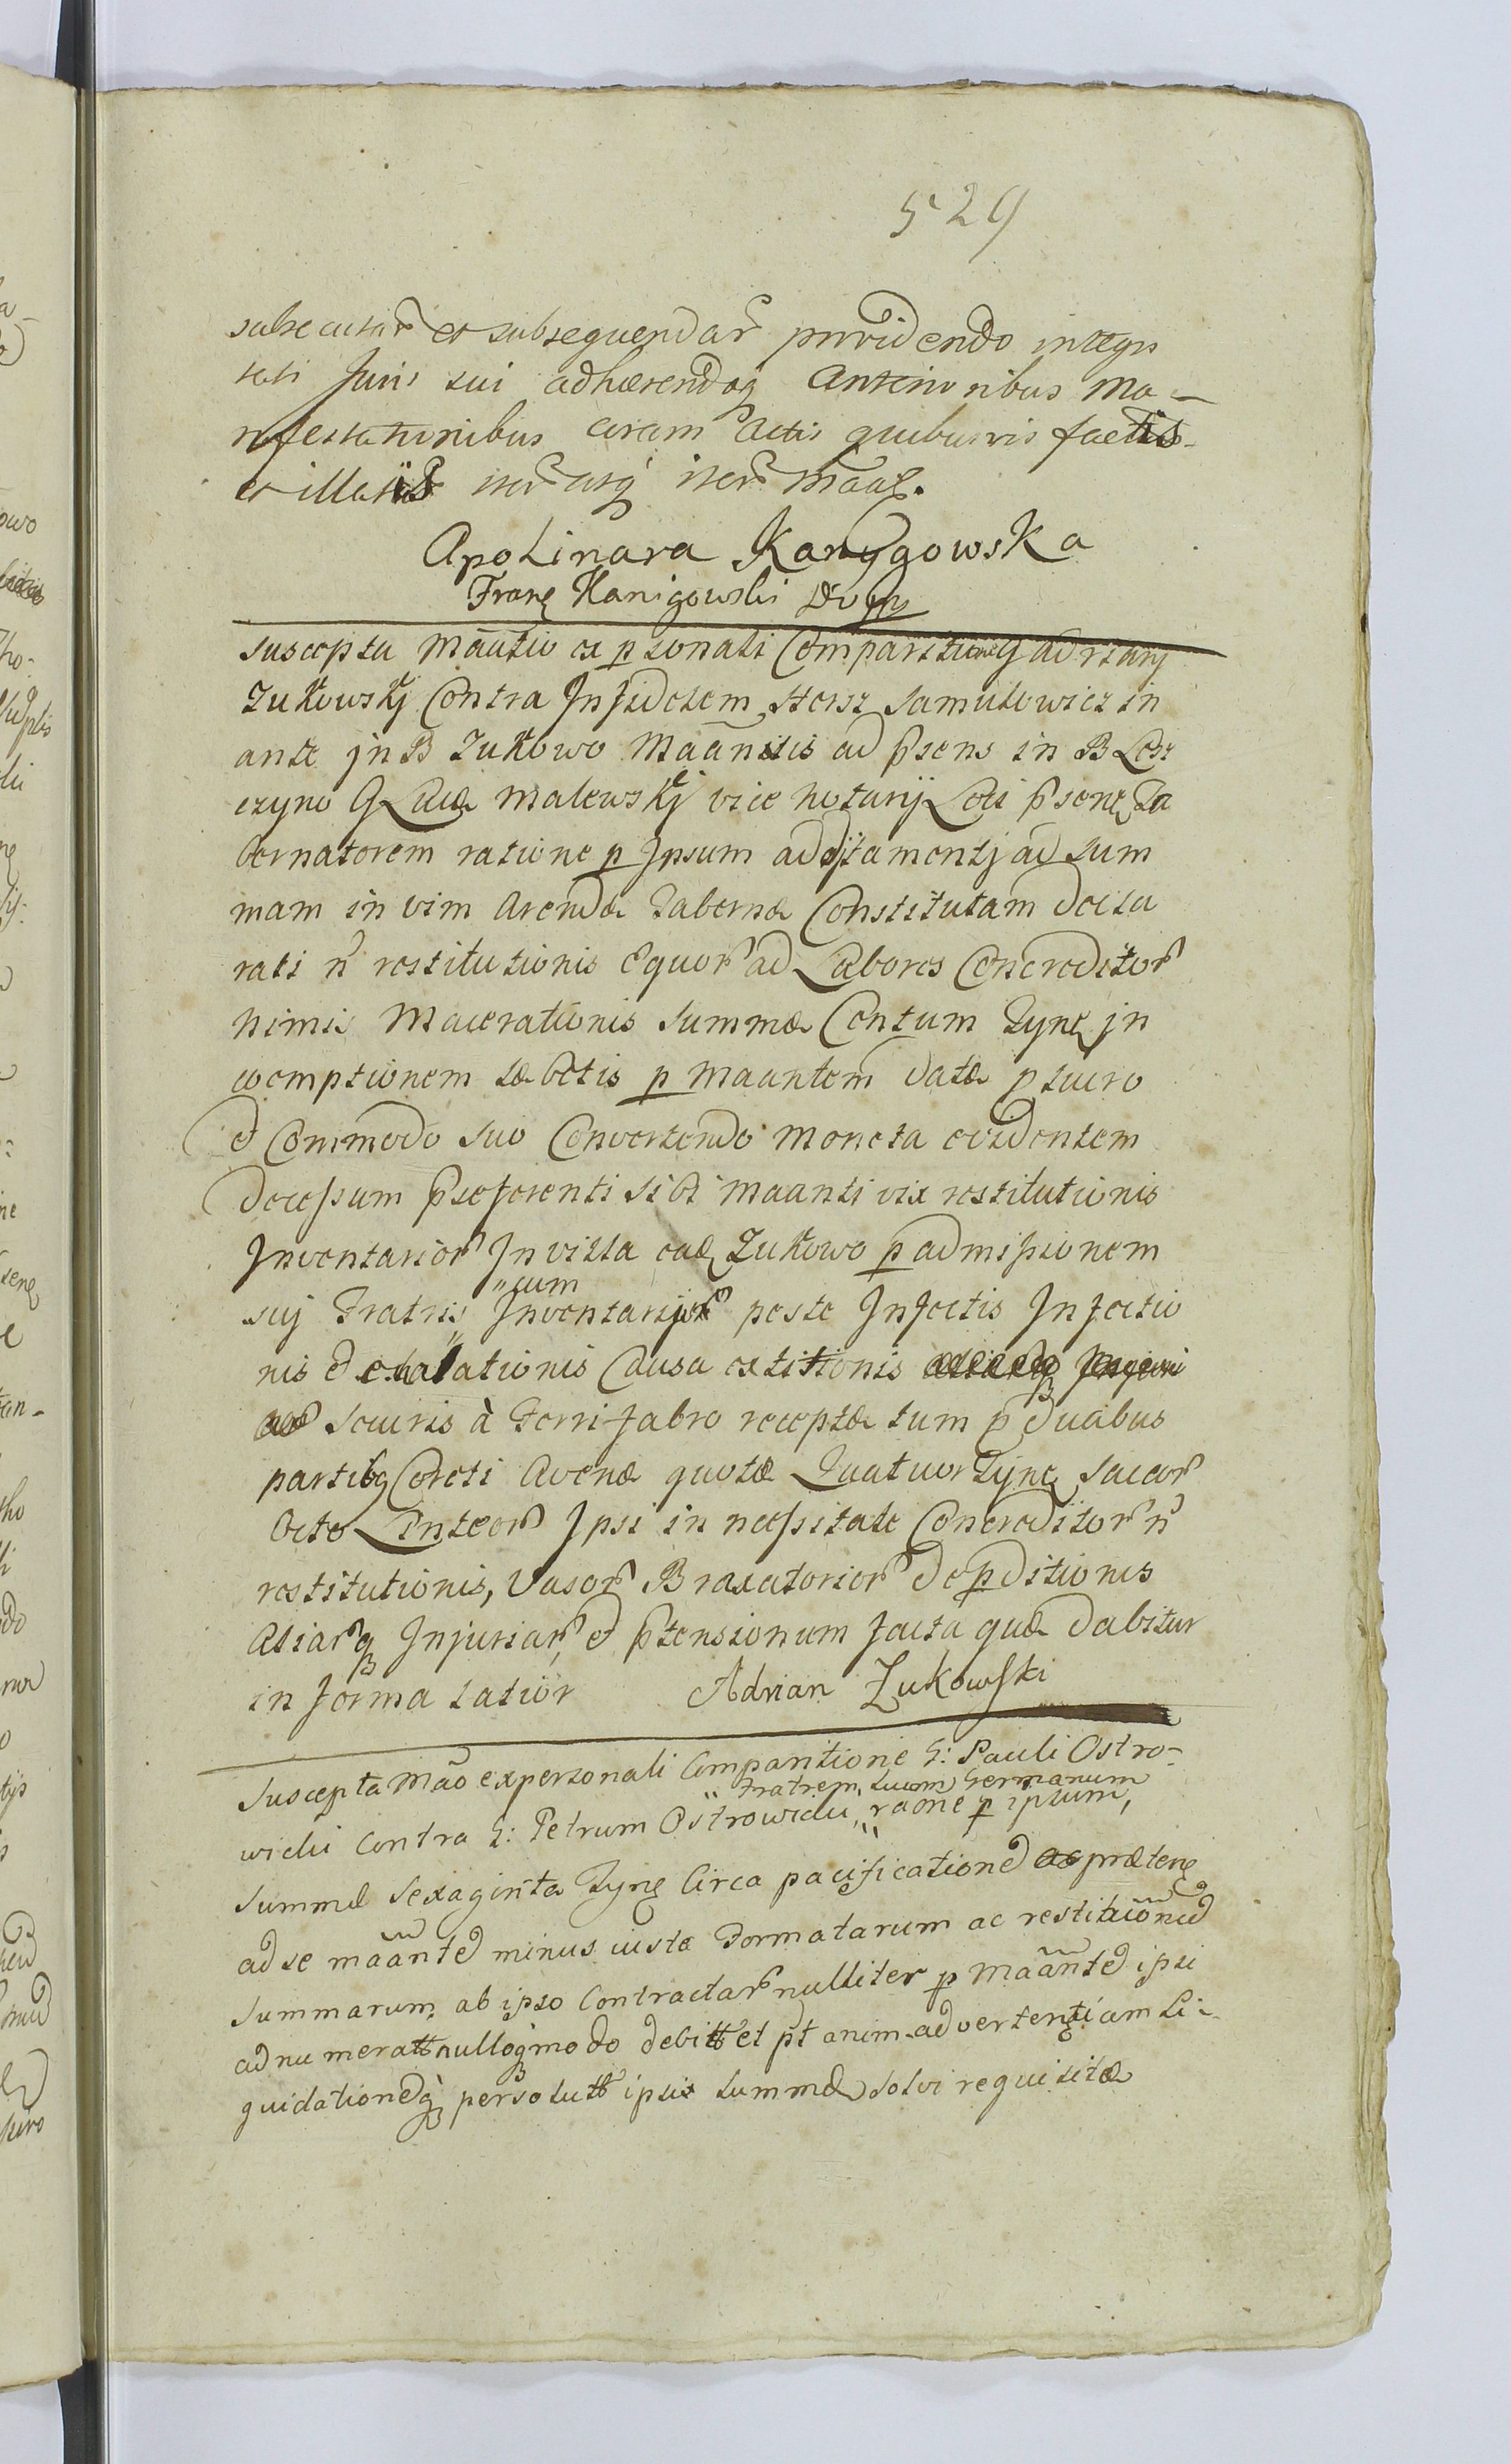 529
subsecutar et subsequendar providendo integri
tati Juris sui adhærendoq anterioribus Ma-
nifestationibus coram Actis quibusvis factis
et illatis iter atq iter maat.
Apolinara Kanygowska
Franc Kanigowski
Suscepta Maātio ex psonali Comparitione G Adriani
Zukowskj Contra Infidelem Hersz Samulowicz in
ante jn B Zukowo Maantis ad psens in B Lesz
czyno G Lucæ Malewskj vice Notarij Loci psenc Ta
bernatorem ratione p Ipsum additamentj ad Sum
mam in vim Arendæ Tabernæ Constitutam decla
rati n restitutionis Equor ad Labores Concreditor
nimis Macerationis Summæ Centum Tync jn
coemptionem p Maantem datæ p lucro
et Commodo suo Convertendo moneta evidentem
decessum pseferenti sibi Maanti vix restitutionis
Inventarior In villa ead Zukowo p admissionem
suj Fratris "cum Inventarijs peste Infectis Infectio
nis et exalationis Causa extitionis
Securis à Ferri fabro receptæ tum p duabus
partibq Coreti Avenæ quotæ Quatuor Tync Saccor
Octo Linteor Ipsi in necessitate Concreditor n
restitutionis, Vasor Braxatorior depditionis
Aliarq Injuriar, et ptensionum facta quæ dabitur
in forma latiör Adrian Zukowski
Suscepta Mão ex personali Comparitione G: Pauli Ostro-
wichi contra G: Petrum Ostrowichi, "Fratrem suum Germanum" raōne p ipsum,
Summæ Sexaginta Tync Circa pacificatione prætens
ad se māante minus iuste Formatarum ac restitutione
Summarum ab ipso Contractar nulliter p Māante ipsi
adnumerat nulloq modo debit et pt animadvertentiam Li-
quidationeq persolut ipsis summæ solvi requisitæ